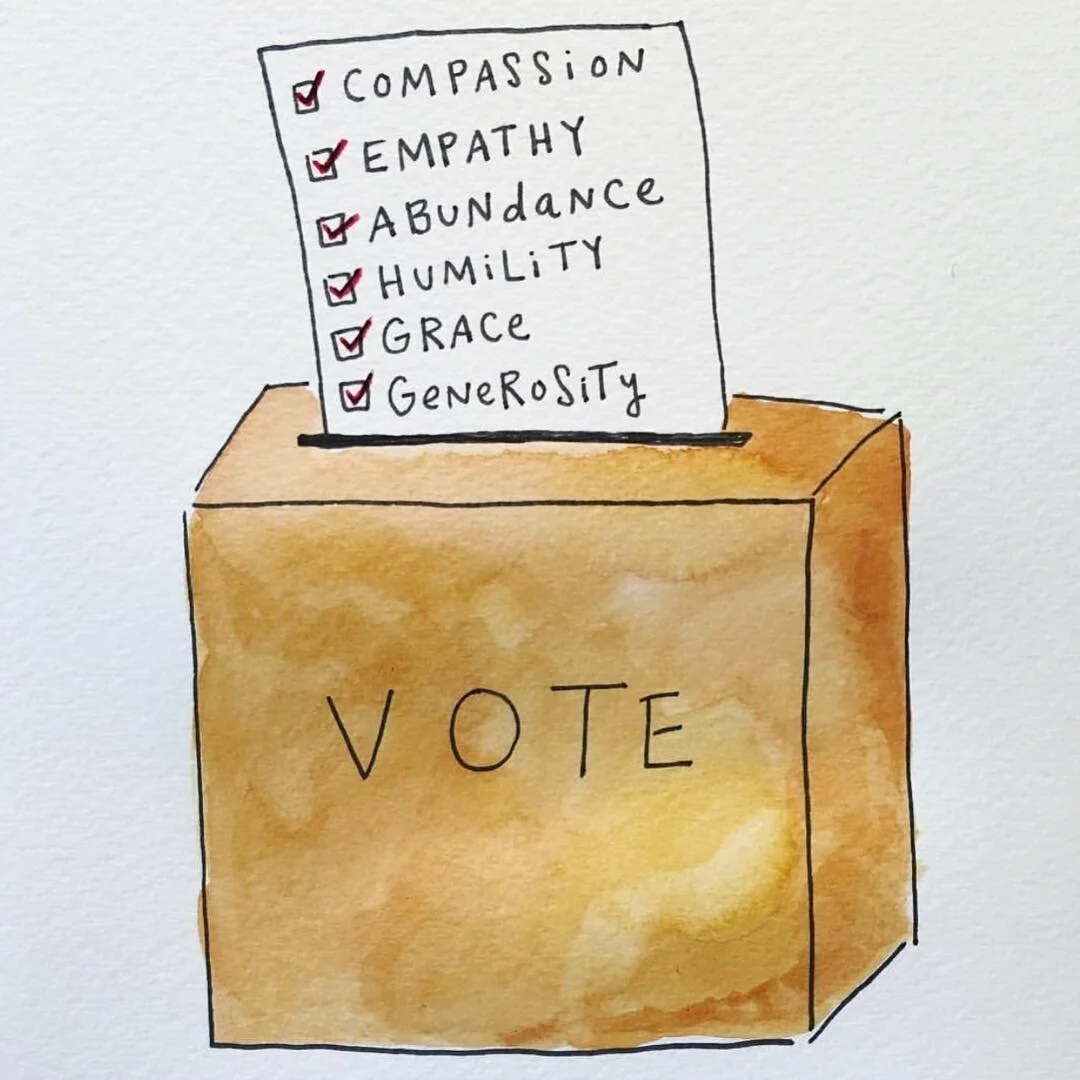 COMPASSiON
EMPATHY
ABUNdANCe
HUMiLiTY
GRACe
GeNeRoSiTy
VOTE